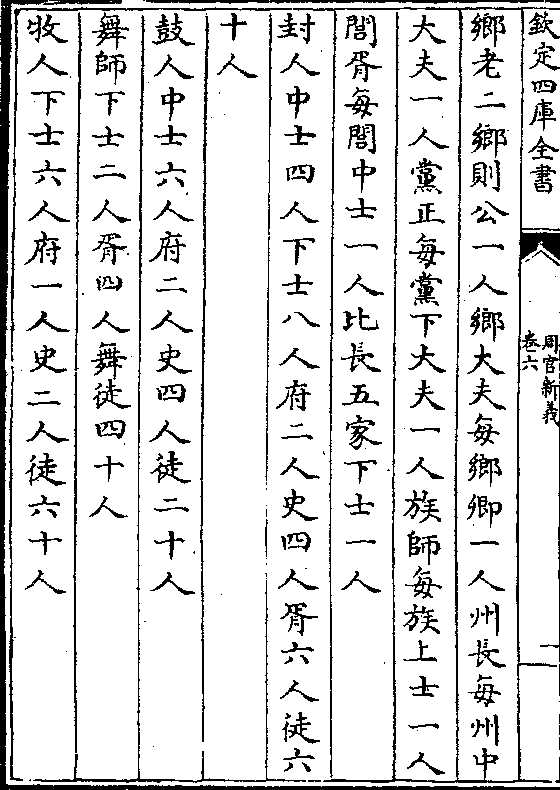 欽定四庫全書
周官新義
卷六
一
鄉老二鄉則公一人鄉大夫每鄉卿一人州長每州中
大夫一人黨正每黨下大夫一人族師每族上士一人
閭胥每閭中士一人比長五家下士一人
封人中士四人下士八人府二人史四人胥六人徒六
十人
鼓人中士六人府二人史四人徒二十人
舞師下士二人胥四人舞徒四十人
牧人下士六人府一人史二人徒六十人